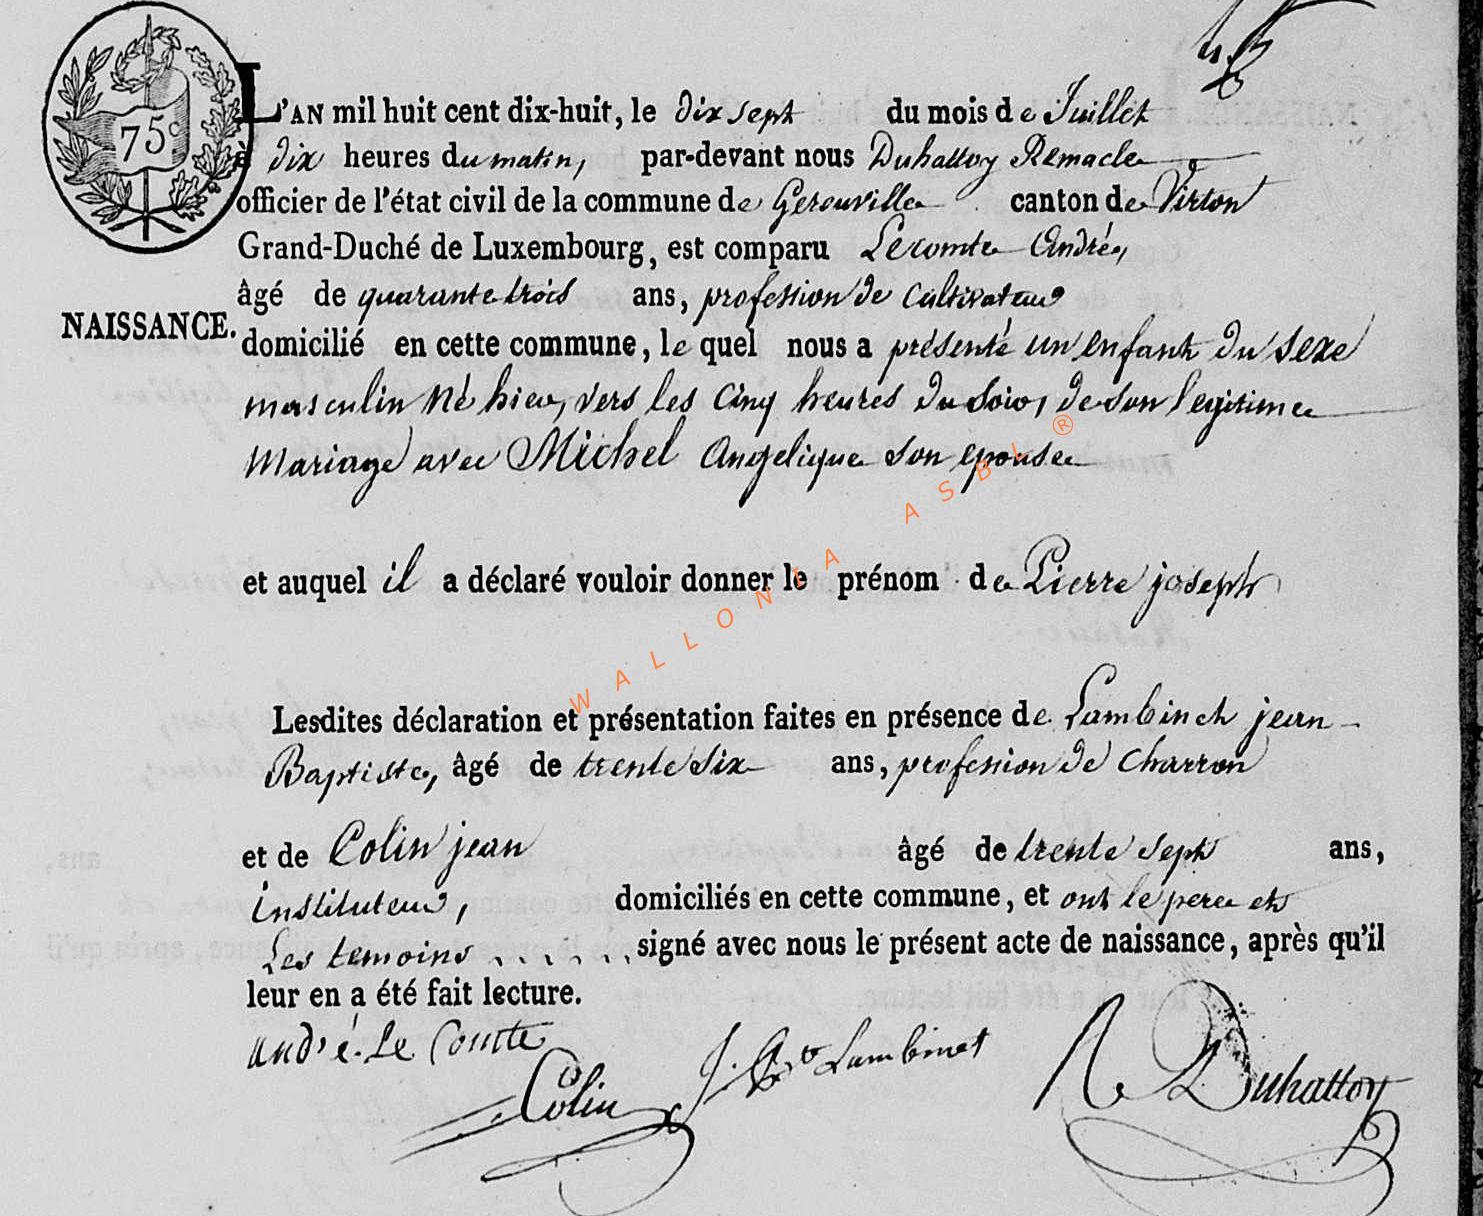 75c
NAISSANCE.
L'AN mil huit cent dix-huit, le dix sept du mois de Juillet
à dix heures du matin, par-devant nous Duhattoy Remacle
officier de l'état civil de la commune de Gerouville canton de Virton
Grand-Duché de Luxembourg, est comparu Lecomte André,
âgé de quarante trois ans, profession de Cultivateur
domicilié en cette commune, le quel nous a présenté un enfant du sexe
masculin né hier, vers les cinq heures du soir, de son legitime
Mariage avec Michel Angelique son epouse
et auquel il a déclaré vouloir donner le prénom de Pierre joseph
Lesdites déclaration et présentation faites en présence de Lambinet jean
Baptiste, âgé de trente six ans, profession de Charron
et de Colin jean âgé de trente sept ans,
instituteur, domiciliés en cette commune, et ont le pere et
Les temoins . . . . . . signé avec nous le présent acte de naissance, après qu'il
leur en a été fait lecture.
André. Le Comte
Colin J. Bte Lambinet R Duhattoy
WALLONIA ASBL ®